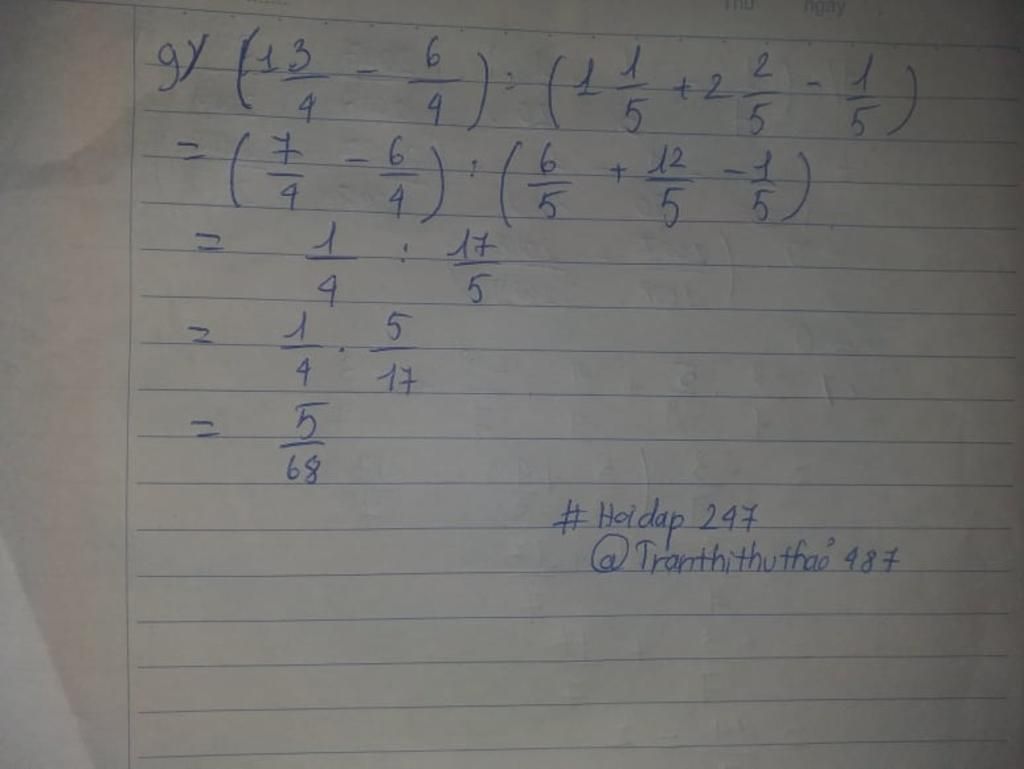 Thứ ngày
g) (1 3/4 - 6/4) : (1 1/5 + 2 2/5 - 1/5)
= (7/4 - 6/4) : (6/5 + 12/5 - 1/5)
= 1/4 : 17/5
= 1/4 . 5/17
= 5/68
# Hoidap 247
@Tranthithuthảo 487